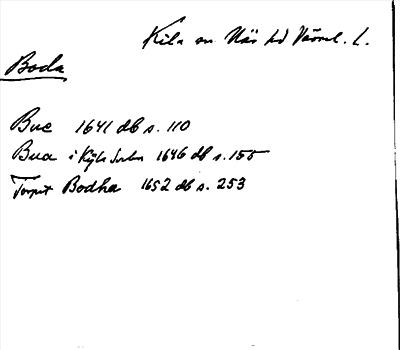 Kila sn Näs hd Värml. L.
Boda
Bue 1641 db s. 110
Bua i Kijla Sokn 1646 db s. 155
Torpit Bodha 1652 db s. 253